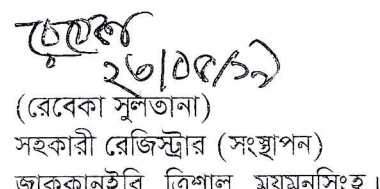 রেবেকা
২৬/০৫/১৯
(রেবেকা সুলতানা)
সহকারী রেজিস্ট্রার (সংস্থাপন)
জাককানইবি ত্রিশাল ময়মনসিংহ।